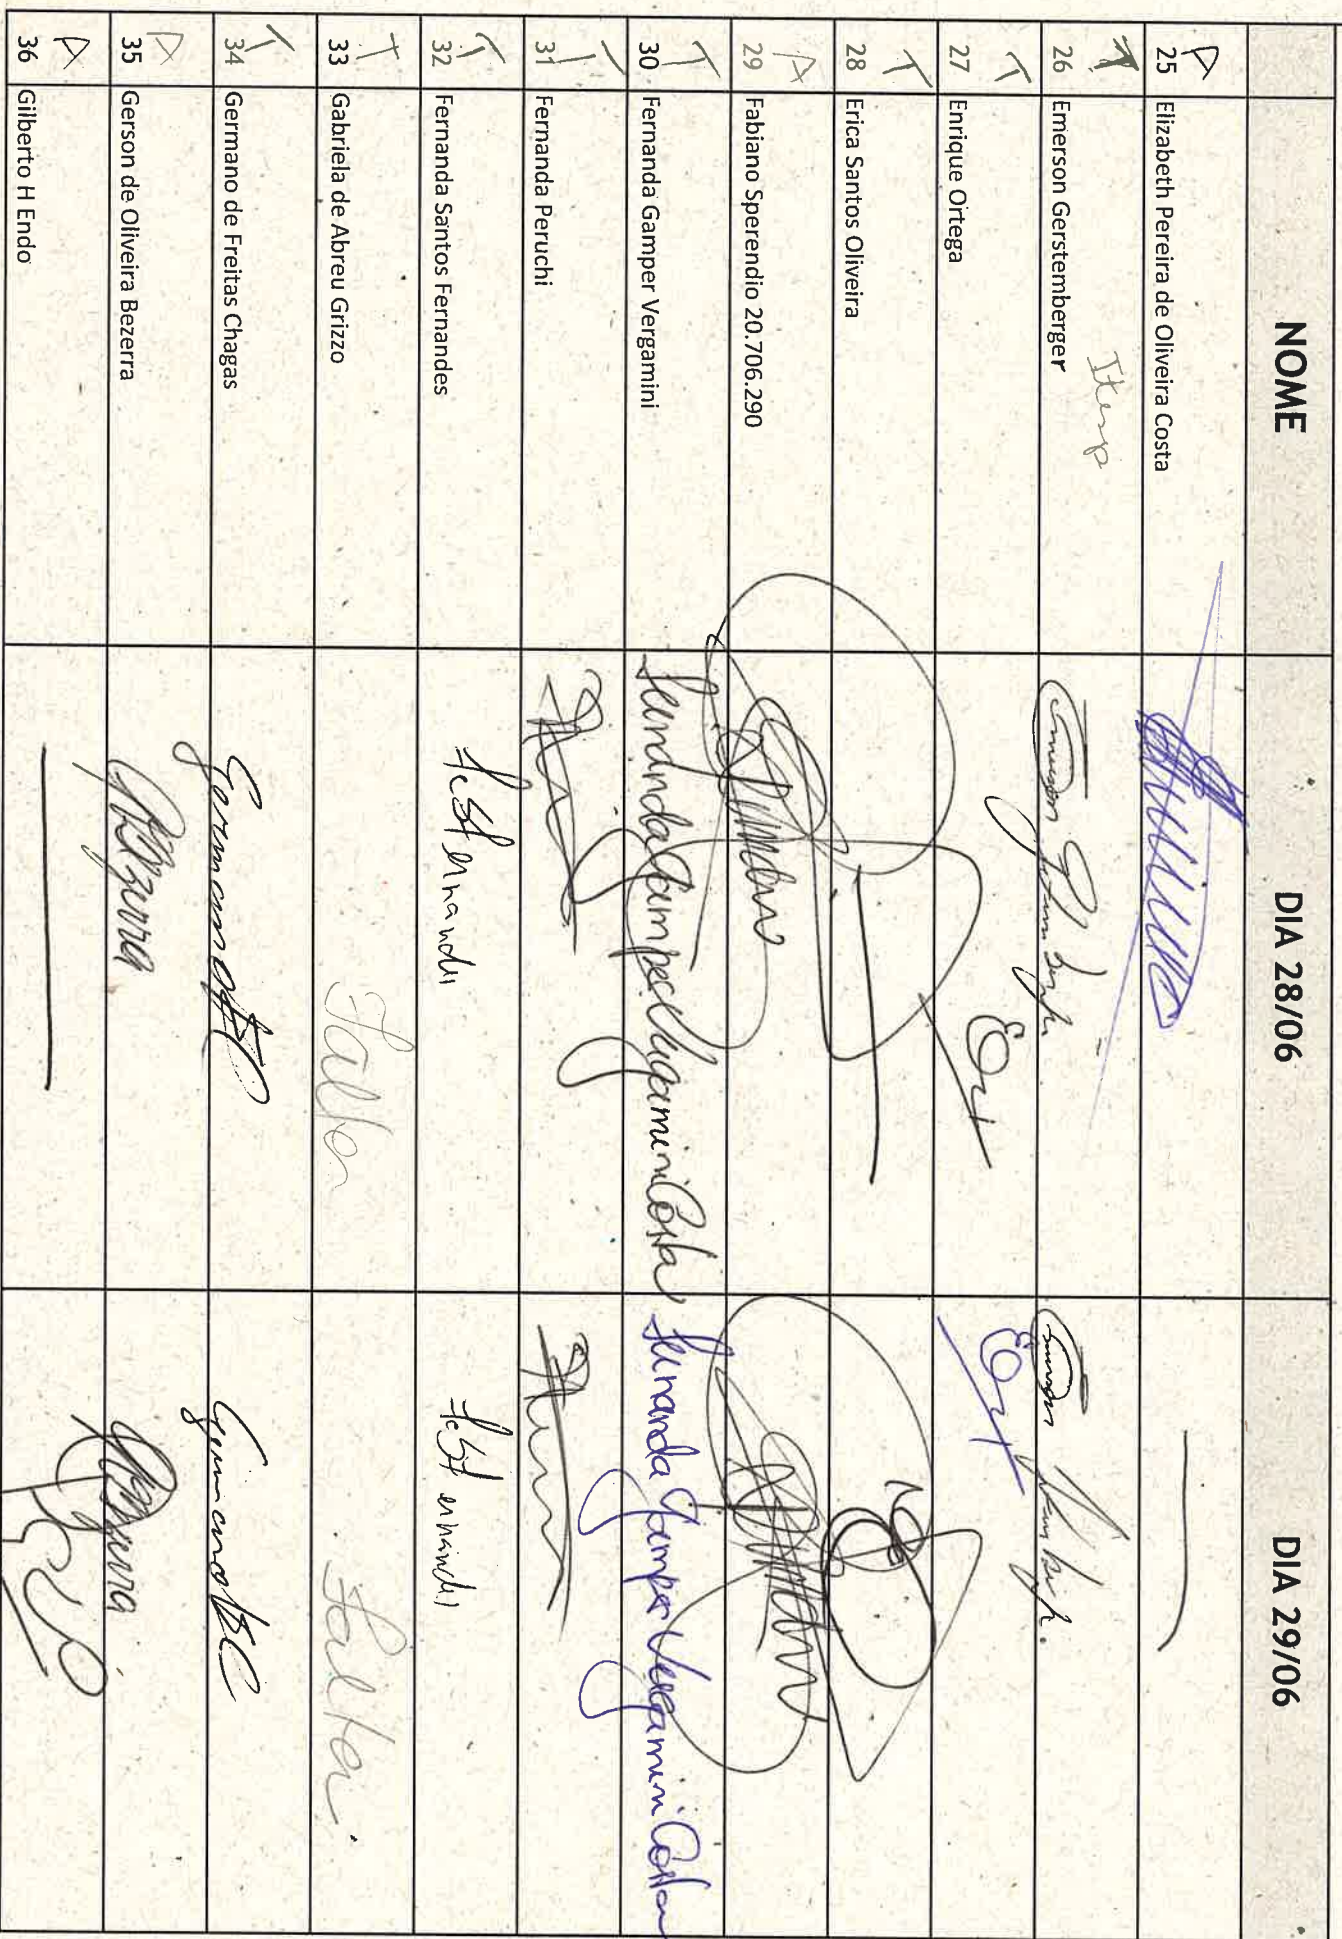 NOME DIA 28/06 DIA 29/06
A 25 Elizabeth Pereira de Oliveira Costa
T 26 Emerson Gerstemberger Itesp
T 27 Enrique Ortega EOrt EOrt
T 28 Erica Santos Oliveira
A 29 Fabiano Sperendio 20.706.290
T 30 Fernanda Gamper Vergamini Fernanda Gamper Vergamini Costa Fernanda Gamper Vergamini Costa
T 31 Fernanda Peruchi
T 32 Fernanda Santos Fernandes FeSFernandes FeSFernandes
T 33 Gabriela de Abreu Grizzo Falta Falta.
T 34 Germano de Freitas Chagas GermanoFC GermanoFC
A 35 Gerson de Oliveira Bezerra
A 36 Gilberto H Endo